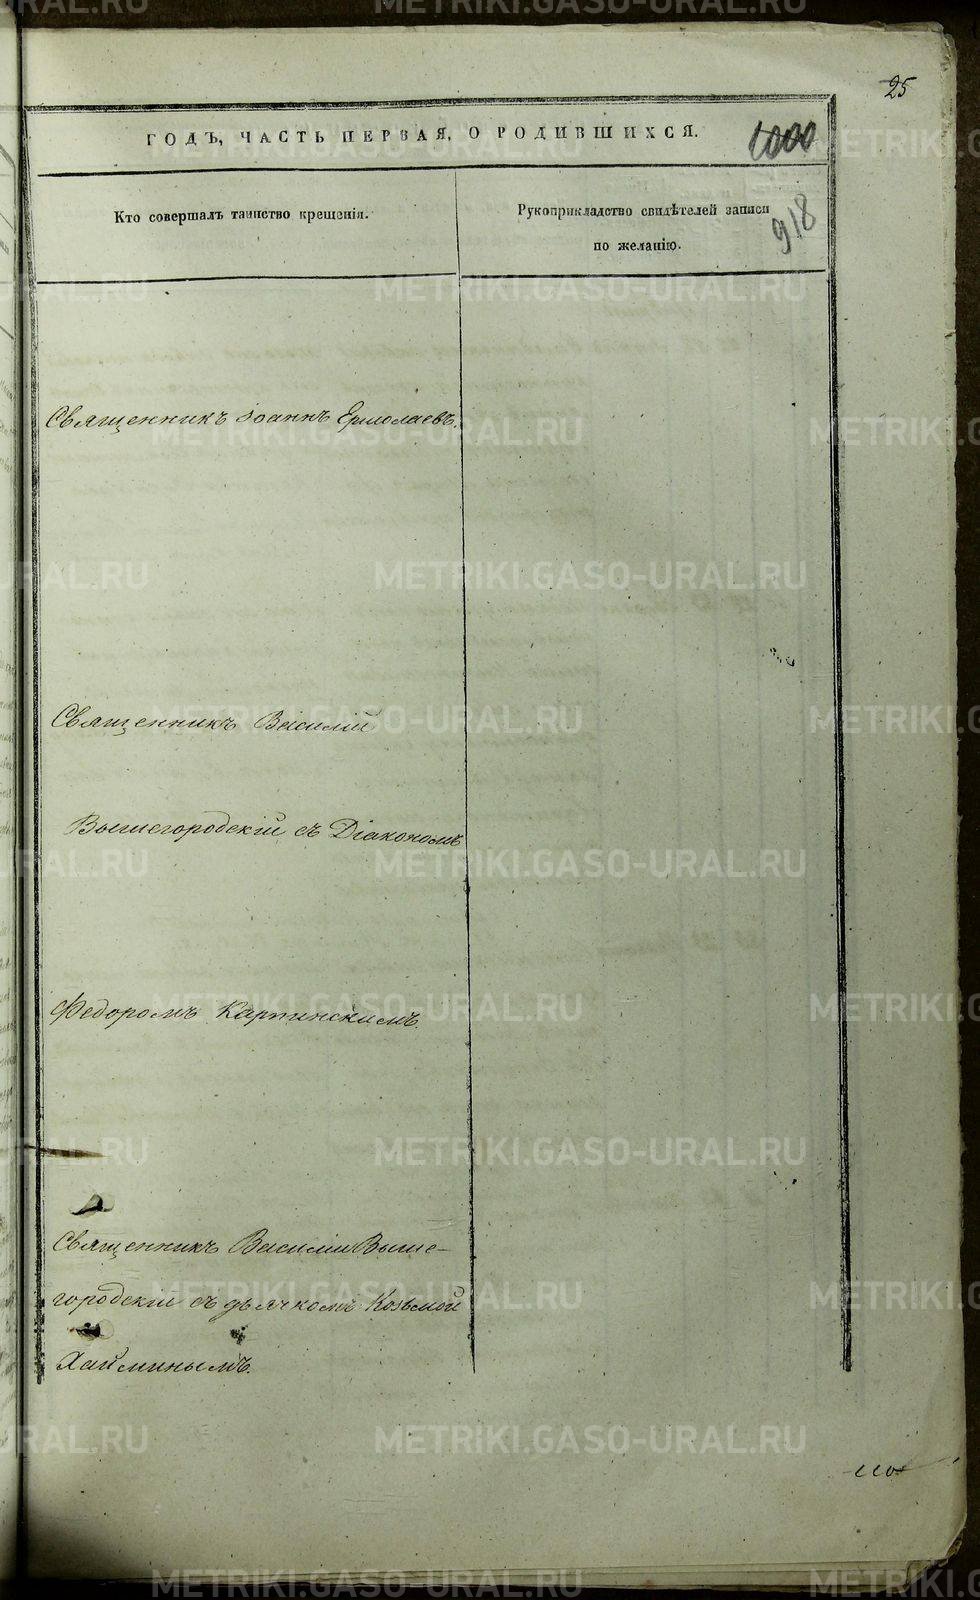 25
ГОДЪ, ЧАСТЬ ПЕРВАЯ, О РОДИВШИХСЯ.
1000
Кто совершалъ таинство крещенія.
Рукоприкладство свидѣтелей записи
по желанію.
918
Священникъ Іоаннъ Ермолаевъ.
Священникъ Василій
Вышегородскій съ Діакономъ
Федоромъ Карпинскимъ.
Священникъ Василій Выше-
городскій съ дьячкомъ Козьмой
Хайминымъ.
METRIKI.GASO-URAL.RU